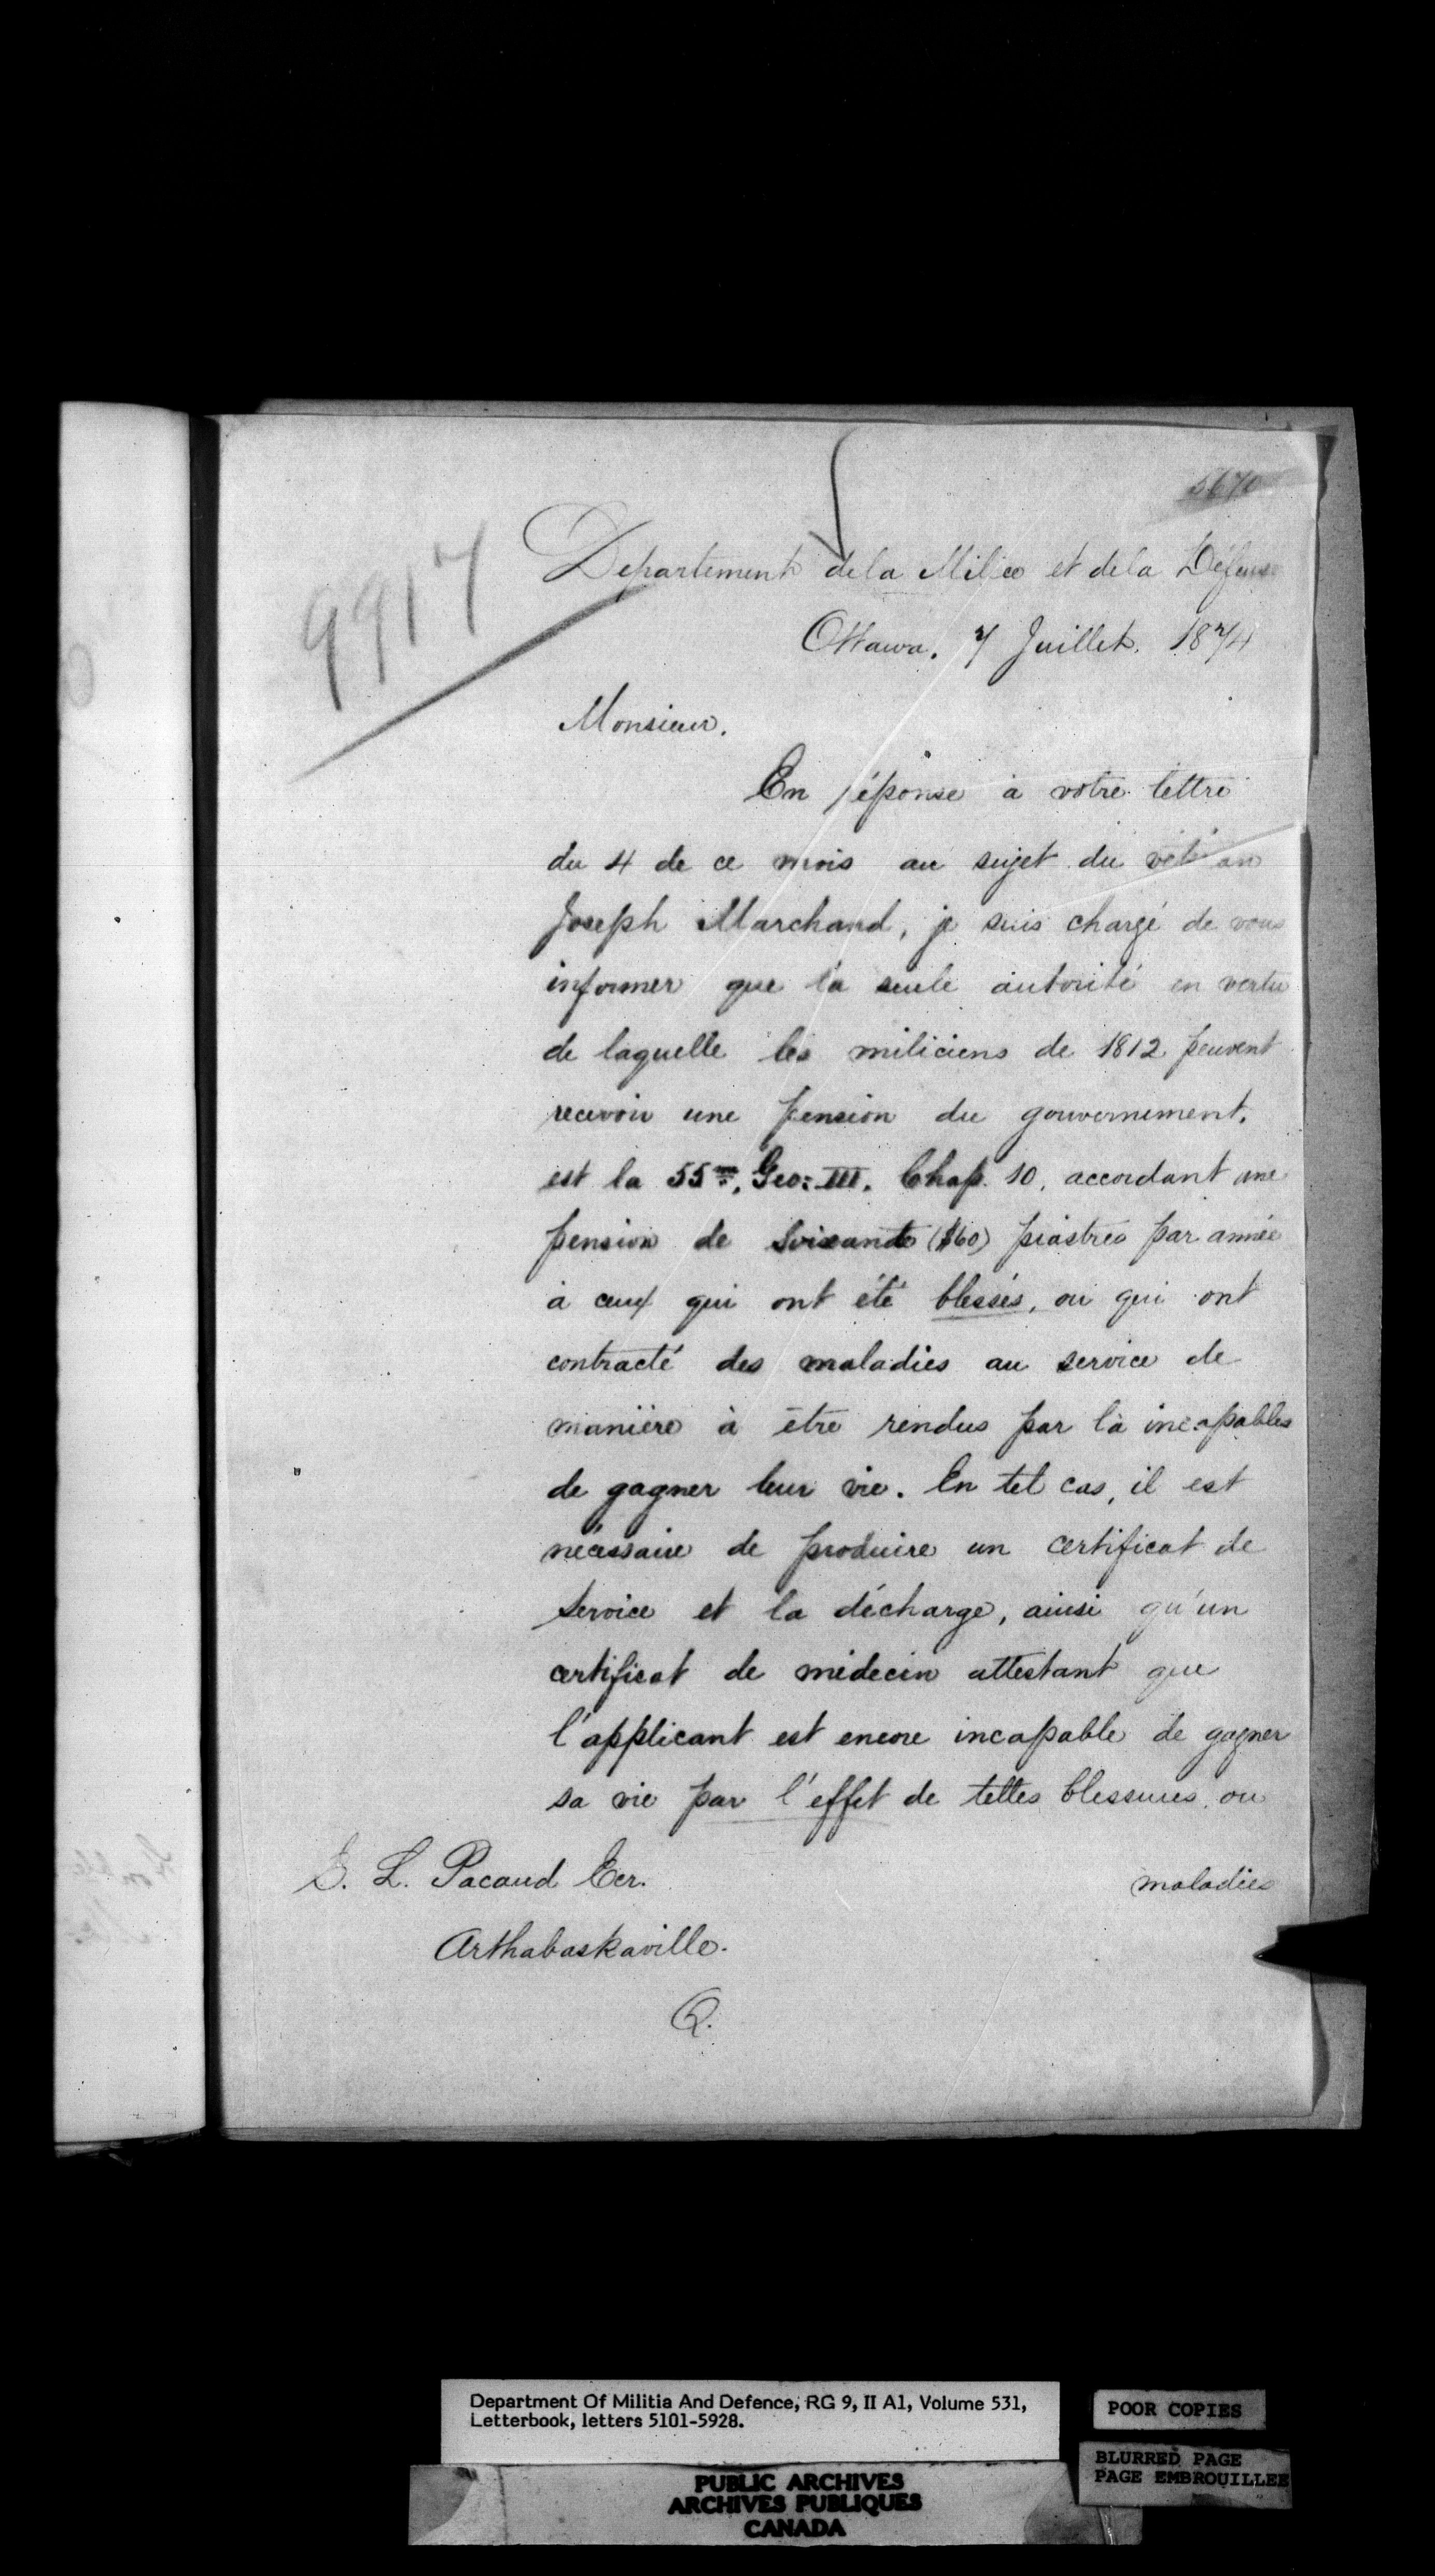 5670
9917
Departement de la Milice et de la Défense
Ottawa. 7 Juillet. 1874
Monsieur.
En réponse à votre lettre
du 4 de ce mois au sujet du vétéran
Joseph Marchand, je suis chargé de vous
informer que la seule autorité en vertu
de laquelle les miliciens de 1812 peuvent
recevoir une pension du gouvernement.
est la 55me. Geo: III. Chap. 10, accordant une
pension de Soixante ($60) piastres par année
à ceux qui ont été blessés, ou qui ont
contracté des maladies au service de
manière à être rendus par là incapables
de gagner leur vie. En tel cas, il est
nécessaire de produire un certificat de
Service et la décharge, ainsi qu'un
certificat de médecin attestant que
l'applicant est encore incapable de gagner
sa vie par l'effet de telles blessures. ou
maladies
E. L. Pacaud Ecr.
Arthabaskaville.
Q.
Department Of Militia And Defence, RG 9, II A1, Volume 531,
Letterbook, letters 5101-5928.
POOR COPIES
BLURRED PAGE
PAGE EMBROUILLEE
PUBLIC ARCHIVES
ARCHIVES PUBLIQUES
CANADA